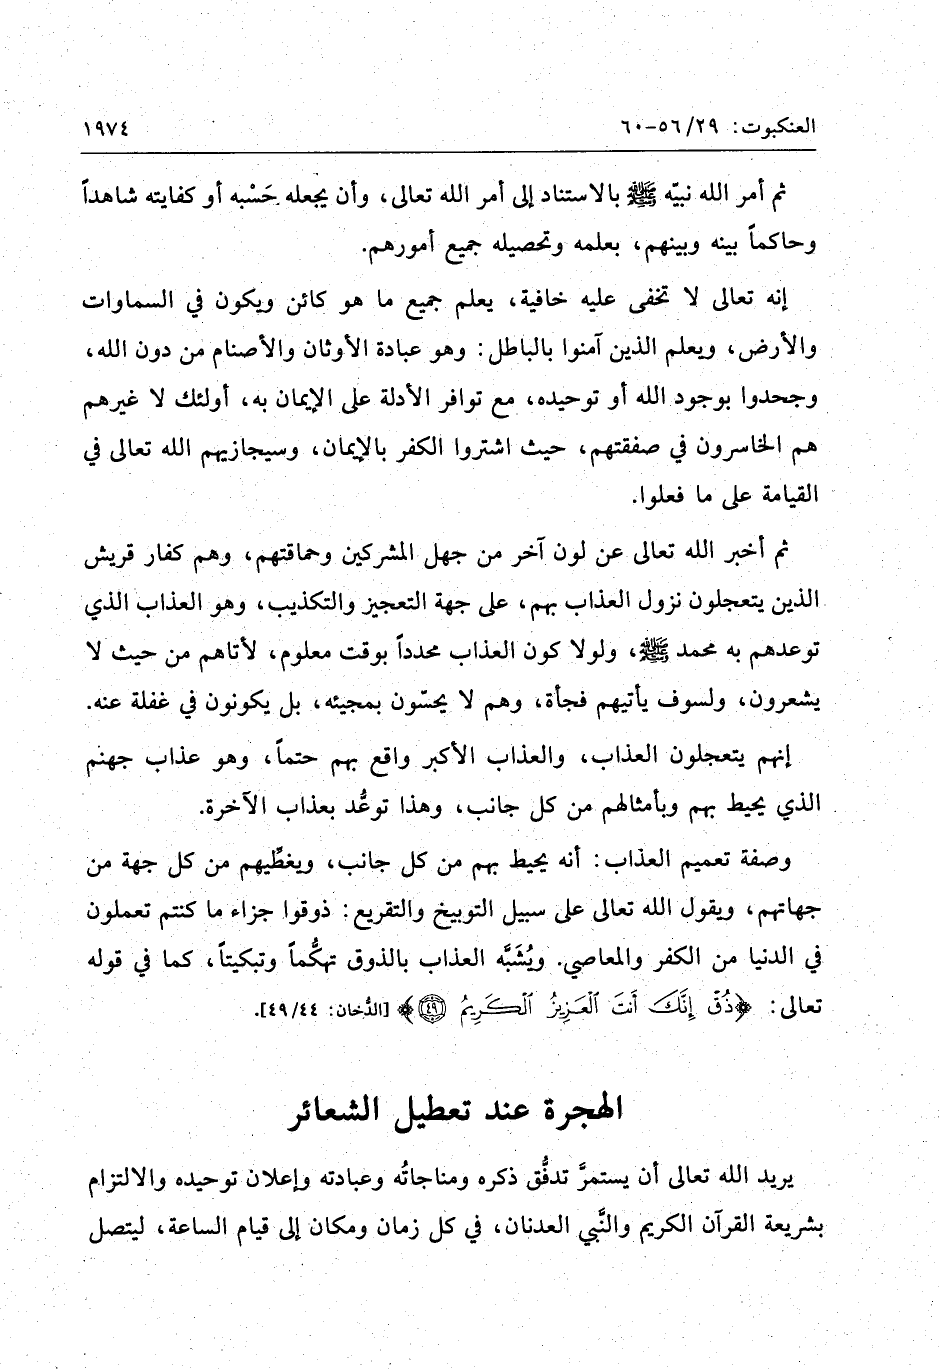 العنكبوت: ٢٩/ ٥٦-٦٠
١٩٧٤
ثم أمر الله نبيّه ﷺ بالاستناد إلى أمر الله تعالى، وأن يجعله حَسْبه أو كفايته شاهداً
وحاكماً بينه وبينهم، بعلمه وتحصيله جميع أمورهم.
إنه تعالى لا تخفى عليه خافية، يعلم جميع ما هو كائن ويكون في السماوات
والأرض، ويعلم الذين آمنوا بالباطل: وهو عبادة الأوثان والأصنام من دون الله،
وجحدوا بوجود الله أو توحيده، مع توافر الأدلة على الإيمان به، أولئك لا غيرهم
هم الخاسرون في صفقتهم، حيث اشتروا الكفر بالإيمان، وسيجازيهم الله تعالى في
القيامة على ما فعلوا.
ثم أخبر الله تعالى عن لون آخر من جهل المشركين وحماقتهم، وهم كفار قريش
الذين يتعجلون نزول العذاب بهم، على جهة التعجيز والتكذيب، وهو العذاب الذي
توعدهم به محمد ﷺ، ولولا كون العذاب محدداً بوقت معلوم، لأتاهم من حيث لا
يشعرون، ولسوف يأتيهم فجأة، وهم لا يحسّون بمجيئه، بل يكونون في غفلة عنه.
إنهم يتعجلون العذاب، والعذاب الأكبر واقع بهم حتماً، وهو عذاب جهنم
الذي يحيط بهم وبأمثالهم من كل جانب، وهذا توعُّد بعذاب الآخرة.
وصفة تعميم العذاب: أنه يحيط بهم من كل جانب، ويغطِّيهم من كل جهة من
جهاتهم، ويقول الله تعالى على سبيل التوبيخ والتقريع: ذوقوا جزاء ما كنتم تعملون
في الدنيا من الكفر والمعاصي. ويُشَبَّه العذاب بالذوق تهكُّماً وتبكيتاً، كما في قوله
تعالى: ﴿ذُقْ إِنَّكَ أَنتَ ٱلْعَزِيزُ ٱلْكَرِيمُ ٤٩﴾ [الدُّخان: ٤٤/ ٤٩].
الهجرة عند تعطيل الشعائر
يريد الله تعالى أن يستمرَّ تدفُّق ذكره ومناجاتُه وعبادته وإعلان توحيده والالتزام
بشريعة القرآن الكريم والنَّبي العدنان، في كل زمان ومكان إلى قيام الساعة، ليتصل